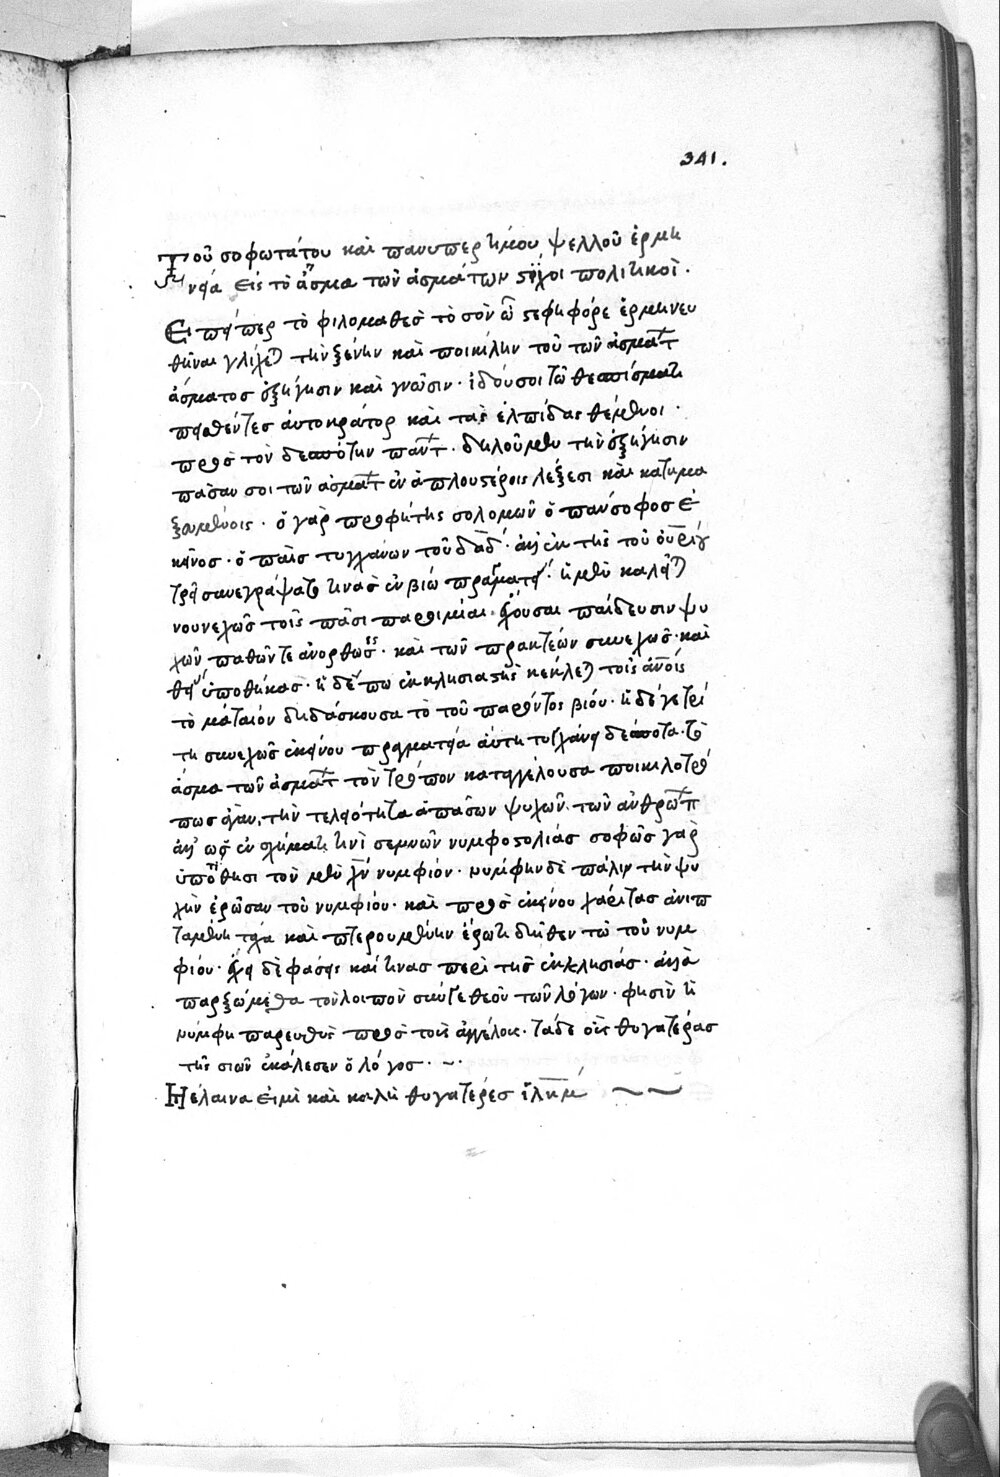 341.
Τοῦ σοφωτάτου καὶ πανυπερτίμου ψελλοῦ ἑρμη
νεία εἰς τὸ ἆσμα τῶν ἀσμάτων στίχοι πολιτικοὶ.
Ἐπείπερ τὸ φιλομαθὲς τὸ σὸν ὦ στεφηφόρε ἑρμηνευ
θῆναι γλίχεται τὴν ξένην καὶ ποικίλην τοῦ τῶν ἀσμάτ
ἄσματος ἐξήγησιν καὶ γνῶσιν. ἰδού σοι τῶ θεσπίσματι
πεισθέντες αὐτοκράτορ καὶ τὰς ἐλπίδας θέμενοι.
πρὸς τὸν δεσπότην πάντ. δηλοῦμεν τὴν ἐξήγησιν
πᾶσαν σοι τῶν ἀσμάτ ἐν ἁπλουστέροις λέξεσι καὶ κατημα
ξευμένοις. ὁ γὰρ προφήτης σολομῶν ὁ πάνσοφος ἐ
κεῖνος. ὁ παῖς τυγχάνων τοῦ δαδ. ἀλλ' ἐκ τῆς τοῦ οὐρίου
τρεῖς συνεγράψατό τινας ἐν βίω πραγματεί. ἡ μὲν καλεῖται
νουνεχῶς τοῖς πᾶσι παροιμίαι. ἔχουσαι παίδευσιν ψυ
χῶν παθῶν τε ἀνορθώσεις. καὶ τῶν πρακτέων συνεχῶς. καὶ
θείας ὑποθήκας. ἡ δέ που ἐκκλησιαστὴς κέκληται τοῖς ἀνοις
τὸ μάταιον διδάσκουσα τὸ τοῦ παρόντος βίου. ἡ δέ γε τρί
τη συνεχῶς ἐκείνου πραγματεία αὕτη τυγχάνει δέσποτα. τὸ
ἆσμα τῶν ἀσμάτ τὸν τρόπον καταγγέλουσα ποικιλοτρό
πως ἄγαν. τὴν τελειότητα ἁπασῶν ψυχῶν τῶν ἀνθρωπ
ἀλλ' ὡς ἐν σχήματι τινὶ σεμνῶν νυμφοστολίας σοφῶς γὰρ
ὑποτίθησι τὸν μὲν χν νυμφίον. νύμφην δὲ πάλιν τὴν ψυ
χὴν ἐρῶσαν τοῦ νυμφίου. καὶ πρὸς ἐκείνου χάριτας ἀνιπ
ταμένην τάχα καὶ πτερουμένην ἔρωτι δῆθεν τῶ τοῦ νυμ
φίου. ἔχει δὲ φάσεις καί τινας περὶ τῆς ἐκκλησίας. ἀλλὰ
παρξώμεθα τὸν λοιπὸν σκύζε θεοῦ τῶν λόγων. φησὶν ἡ
νύμφη παρευθὺς πρὸς τοὺς ἀγγέλους. τάδε οἷς θυγατέρας
τῆς σιὼν ἐκάλεσεν ὁ λόγος. ~.
Μέλαινα εἰμὶ καὶ καλὴ θυγατέρες ἱλημ